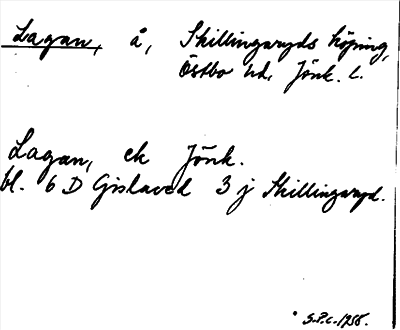 Lagan, å, Skillingaryds köping,
Östbo hd, Jönk. l.
Lagan, ek Jönk.
bl. 6 D Gislaved 3 j Skillingaryd.
S.P.C. 1958.